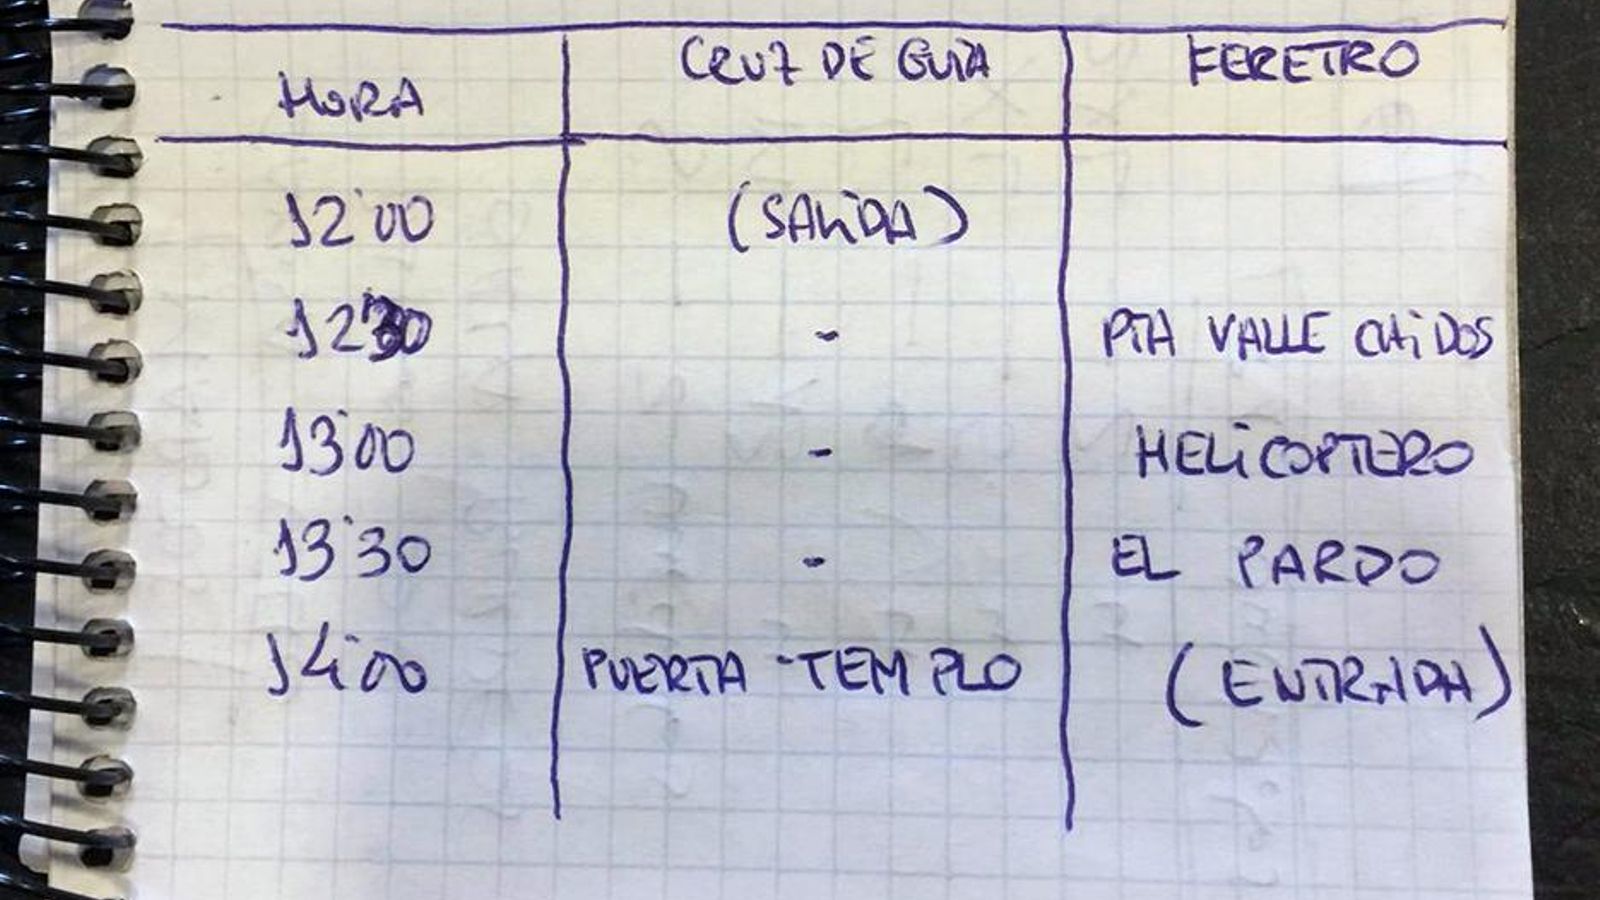 HORA CRUZ DE GUIA FERETRO
12'00 (SALIDA)
12'30 - PTA VALLE CAIDOS
13'00 - HELICOPTERO
13'30 - EL PARDO
14'00 PUERTA TEMPLO (ENTRADA)